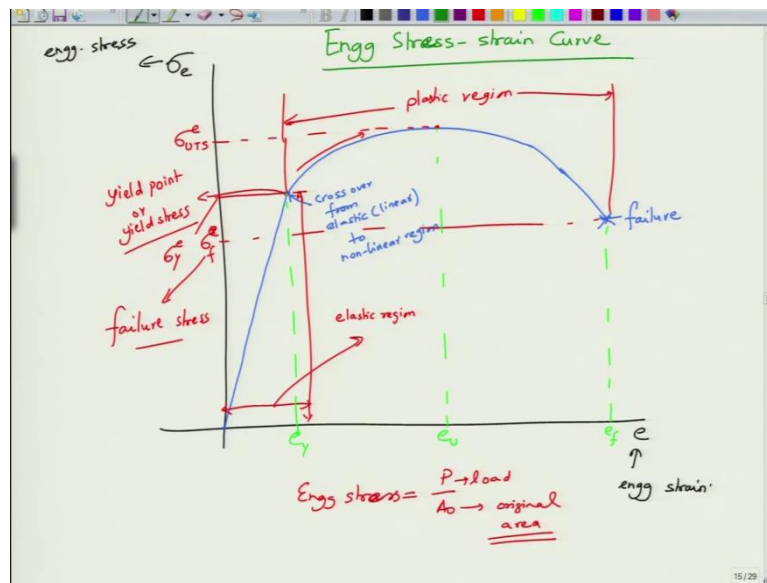 Engg Stress-strain Curve
engg. stress
←σe
plastic region
σᵉUTS
yield point
or
yield stress
cross over
from
elastic (linear)
to
non-linear region
failure
σᵉy σᵉf
failure stress
elastic region
ey
eu
ef
e
engg strain.
Engg stress = P→load
A₀→ original
area
15/29